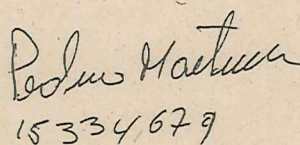 Pedro Martinez
15334679